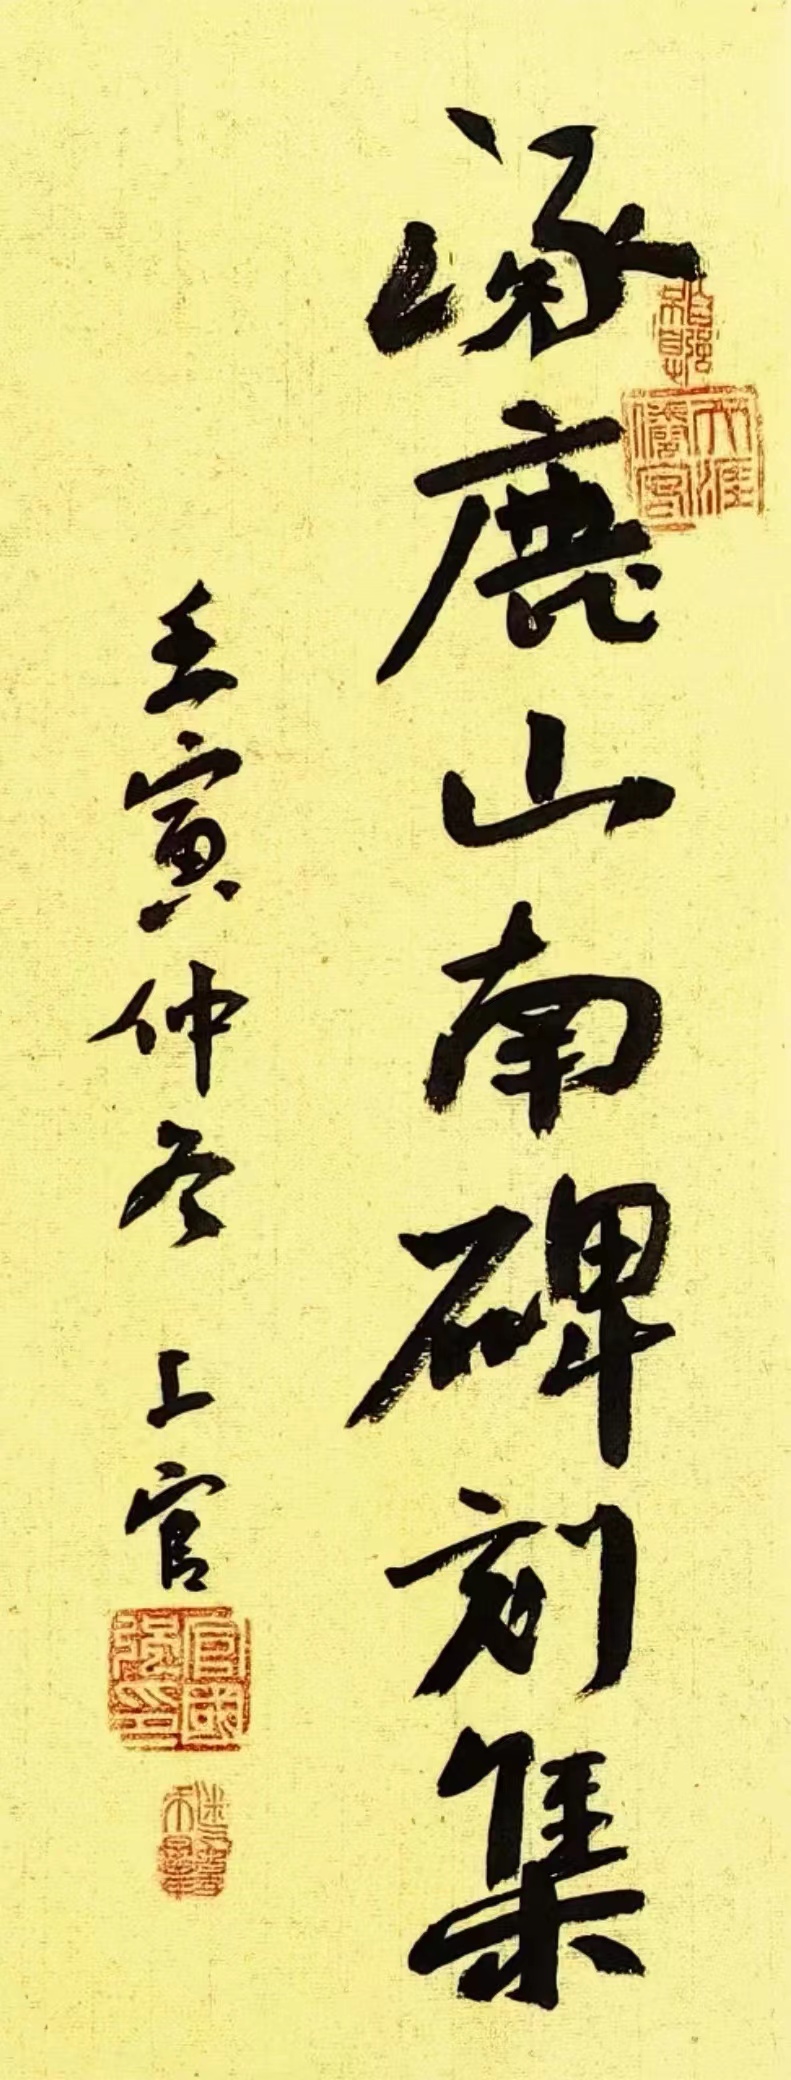 涿鹿山南碑刻集
壬寅仲冬 上官